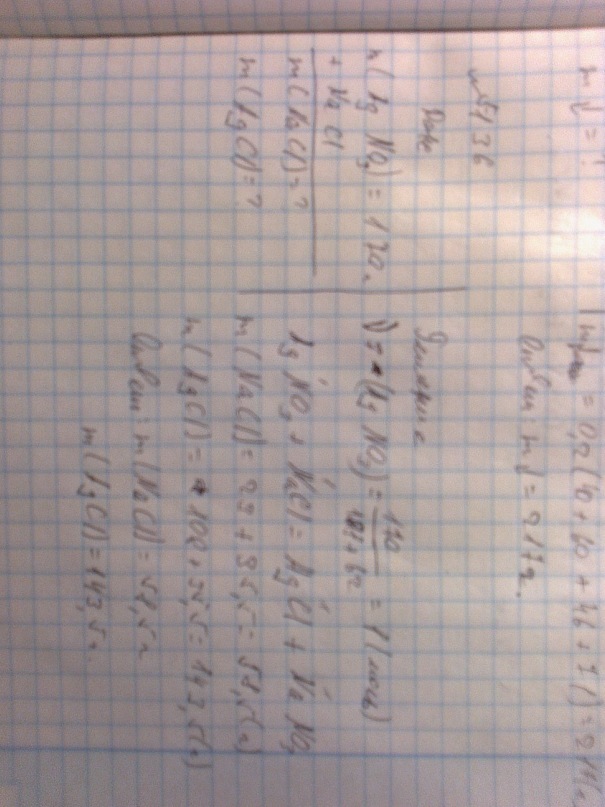 m₁ = ?
= 0,2(40 + 60 + 46 + 71) = 217
Ответ: m₁ = 217г.
№136
Дано
Решение
m(AgNO₃) = 170г
+ NaCl
m(NaCl) = ?
m(AgCl) = ?
(AgNO₃) = 170 / + 62 = 1 (моль)
AgNO₃ + NaCl = AgCl + NaNO₃
m(NaCl) = 23 + 35,5 = 58,5(г)
m(AgCl) = 108 + 35,5 = 143,5(г)
Ответ: m(NaCl) = 58,5г
m(AgCl) = 143,5г.